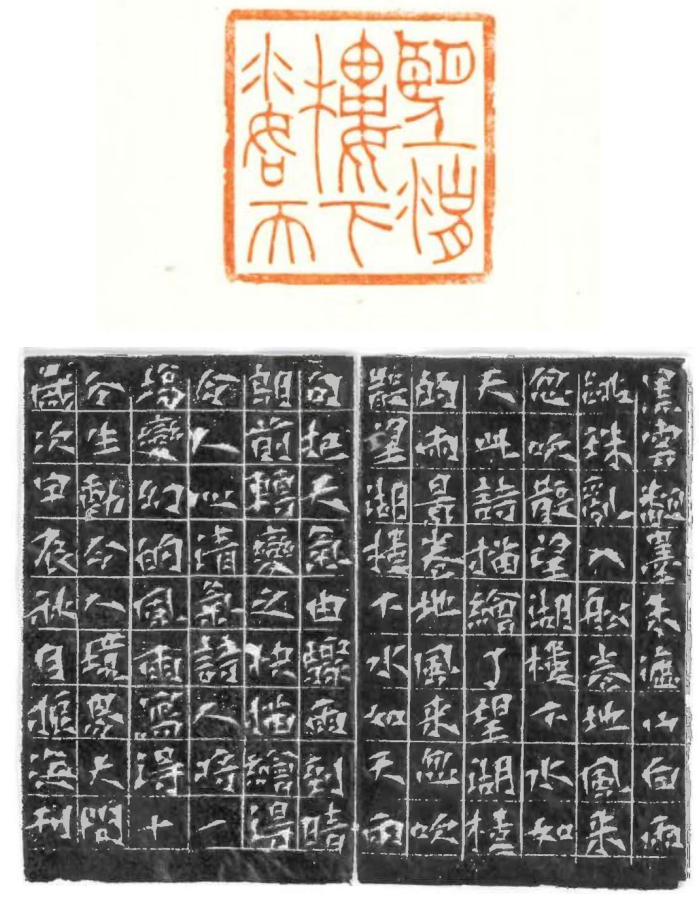 望湖
樓下
水如天
黑雲翻墨未遮山白雨
跳珠亂入船卷地風來
忽吹散望湖樓下水如
天此詩描繪了望湖樓
的雨景卷地風來忽吹
散望湖樓下水如天兩
句把天氣由驟雨到晴
朗前轉變之快描繪得
令人心清氣詩人將一
場變幻的風雨寫得十
分生動令人境界大開
歲次甲辰秋月振海刊